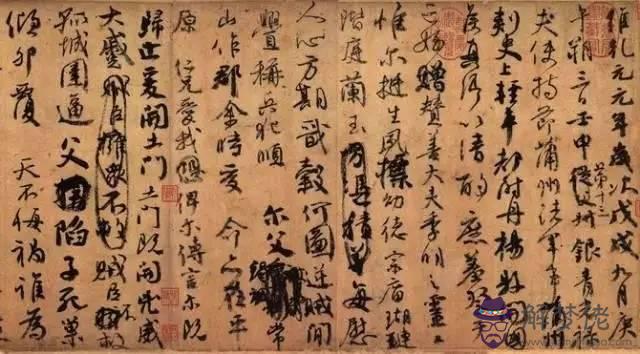 維乾元元年歲次戊戌九月庚
午朔三日壬申第十三從父叔銀青光祿
夫使持節蒲州諸軍事蒲州
刺史上輕車都尉丹楊縣開國
侯真卿以清酌庶羞祭于
亡姪贈贊善大夫季明之靈曰
惟爾挺生夙標幼德宗廟瑚璉
階庭蘭玉方憑積善每慰
人心方期戩穀何圖逆賊間
釁稱兵犯順 爾父竭誠常
山作郡余時受 命亦在平
原仁兄愛我俾爾傳言爾既
歸止爰開土門土門既開凶威
大蹙賊臣擁眾不救賊臣不救
孤城圍逼父陷子死巢
傾卵覆 天不悔禍誰為
解梦佬